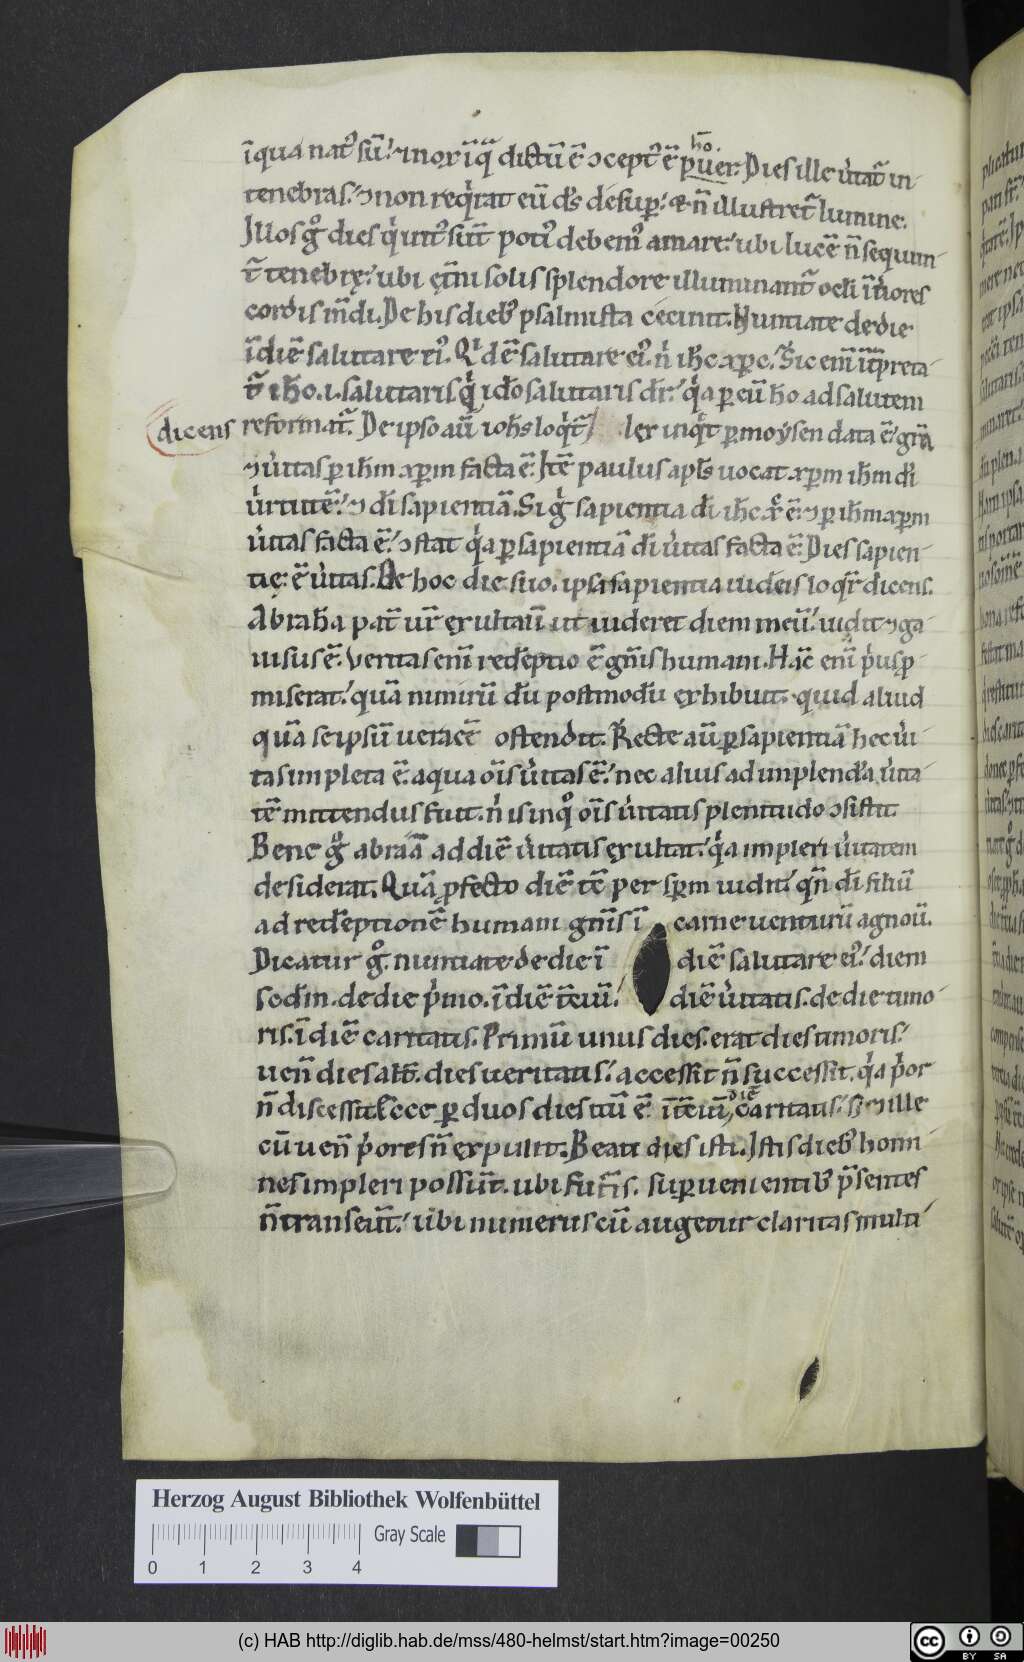 ho.
ī qua nat᷒ sū. ⁊ nox ī q̄ dictū ē ↄcept᷒ ē puer. Dies ille ůtat̄ in
tenebras. ⁊ non reqͥrat eū ds̄ desuꝑ. & n̄ illustret̄ lumine.
Illos gͦ dies qͥ uıt᷒ sūt poti᷒ debem᷒ amare. ubi lucē n̄ sequun
t̄ tenebrę. ubi et̄ni solis splendore illuminant̄ ocl̄i īt̓iores
cordis m̄di. De his dieb᷒ psalmista cecinit. Nuntiate de die
ī diē salutare ei᷒. Qͥ d ē salutare ei᷒. nͥ ih̄c xp̄c. Sic enī īt̓preta
t̄ ih̄c .i. salutaris. qͥ iđo salutaris dr̄. qͥa ꝑ eū ho ad salutem
dicens reformat̄. De ipso aū ioh̄s loqͥt̄ lex inqͥt ꝑ moysen data ē. gr̄a
⁊ ůitas ꝑ ih̄m xp̄m facta ē. Itē paulus apl̄s uocat xp̄m ih̄m di̓
uͥrtutē. ⁊ dī sapientiā. Si gͥ sapientia dī ih̄c xr̄ ē. ⁊ ꝑ ih̄m xp̄m
ůitas facta ē. ↄstat qͥa ꝑ sapientiā dī ůitas facta ē. Dies sapien
tię ē ůitas. De hoc die suo. ipsa sapientia iudeis loqͥt̄ dicens.
Abrah̄a pat̄ ur̄ exultauī ut uideret diem meū. uidit ⁊ ga
uisus ē. Veritas enī redēptio ē gn̄is humani. Hāc enī pͥus ꝓ
miserat. quā nimirū dū postmodū exhibuit. quid aliud
quā seipsū ueracē ostendit. Recte aū ꝑ sapientiā hec ůi
tas impleta ē. a qua oīs ůitas ē. nec alius ad implendā ůita
tē mittendus fuit. nͥ is in qͦ oīs ůitatis plenitudo ↄsistit.
Bene gͦ abraā ad diē ůitatis exultat. qͥa impleri ůitatem
desiderat. Quā ꝓfecto diē tē per sp̄m uidit. qn̄ dī filiū
ad redēptionē humani gn̄is ī carne uenturū agnoū.
Dicatur gͦ. nuntiate de die ī diē salutare ei᷒. diem
sod̄m. de die pͥmo. ī diē t̄ciū. diē ůitatis. de die timo
ris. ī diē caritatis. Primū unus dies. erat dies timoris.
uen̄ dies alt̄. dies ueritatis. accessit n̄ successit. qͥa pͥor
n̄ discessit. Ecce ꝑ duos dies tū ē ī t̄ciū, diē caritatis. S; ⁊ ille
cū uen̄ pͥores n̄ expulit. Beati dies isti. Istis dieb᷒ homi
nes impleri possūt. ubi fut̄is. suꝑuenientib᷒ p̄sentes
n̄ transeūt. ubi numerus cū augetur claritas multi
Herzog August Bibliothek Wolfenbüttel
Gray Scale
0 1 2 3 4
(c) HAB http://diglib.hab.de/mss/480-helmst/start.htm?image=00250
cc BY SA